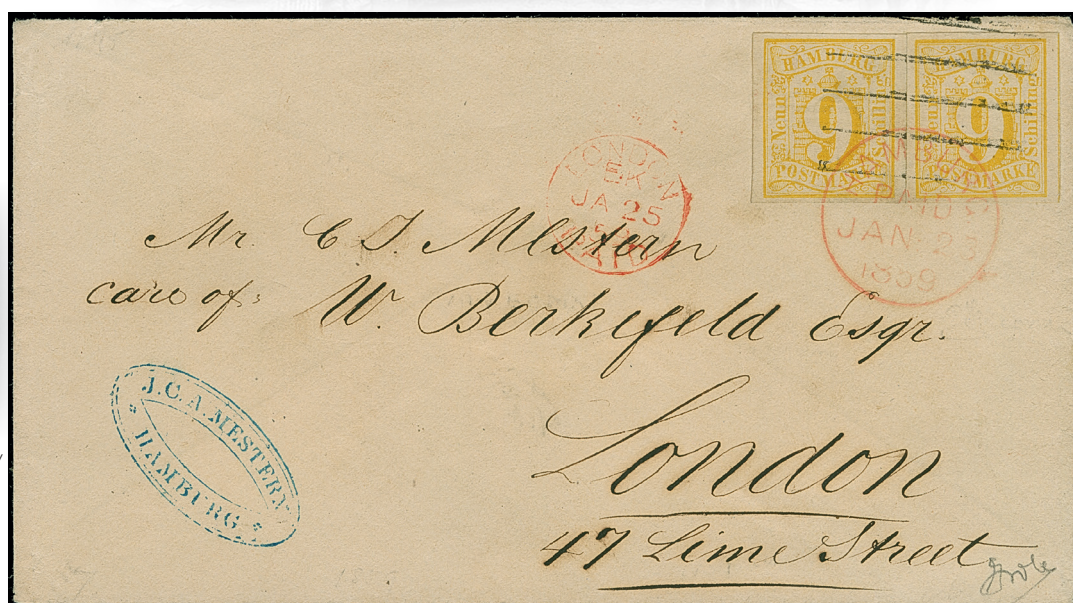 HAMBURG
Neun Schilling
9
POSTMARKE
HAMBURG
Neun Schilling
9
POSTMARKE
LONDON
EK
JA 25
59
PAID
HAMBURG
PAID
JAN 23
1859
Mr. C J. Mestern
care of:
W. Berkefeld Esqr.
London
47 Lime Street
J.C.A. MESTERN
HAMBURG